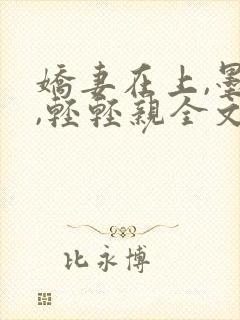 嬌妻在上,墨
,輕輕親全文
比永博